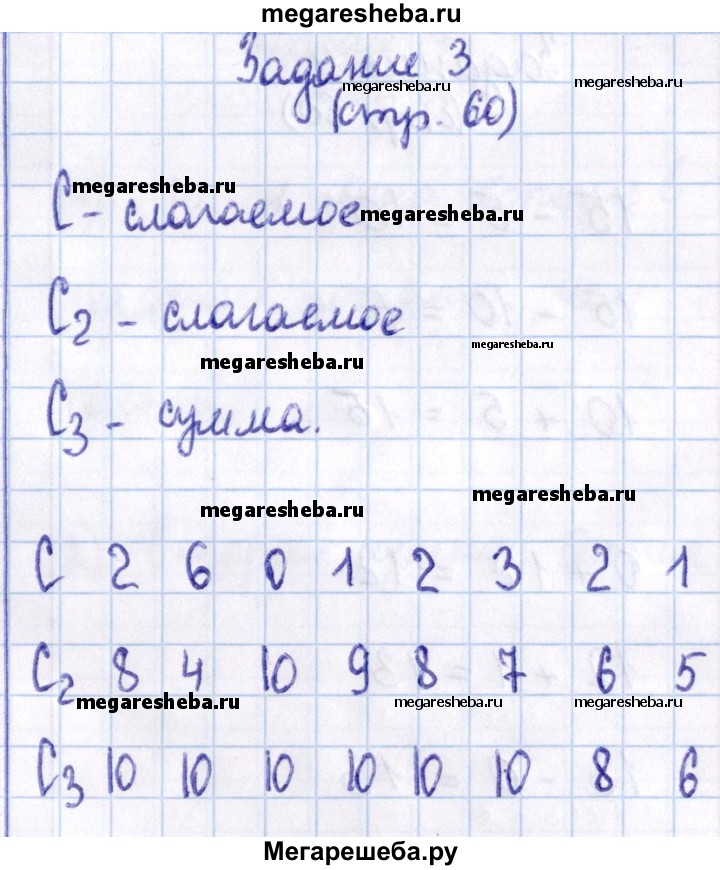 megaresheba.ru
Задание 3
megaresheba.ru
megaresheba.ru
(стр. 60)
megaresheba.ru
С - слагаемое
megaresheba.ru
С2 - слагаемое
megaresheba.ru
megaresheba.ru
С3 - сумма.
megaresheba.ru
megaresheba.ru
С 2 6 0 1 2 3 2 1
С2 8 4 10 9 8 7 6 5
megaresheba.ru
megaresheba.ru
megaresheba.ru
С3 10 10 10 10 10 10 8 6
Мегарешеба.ру